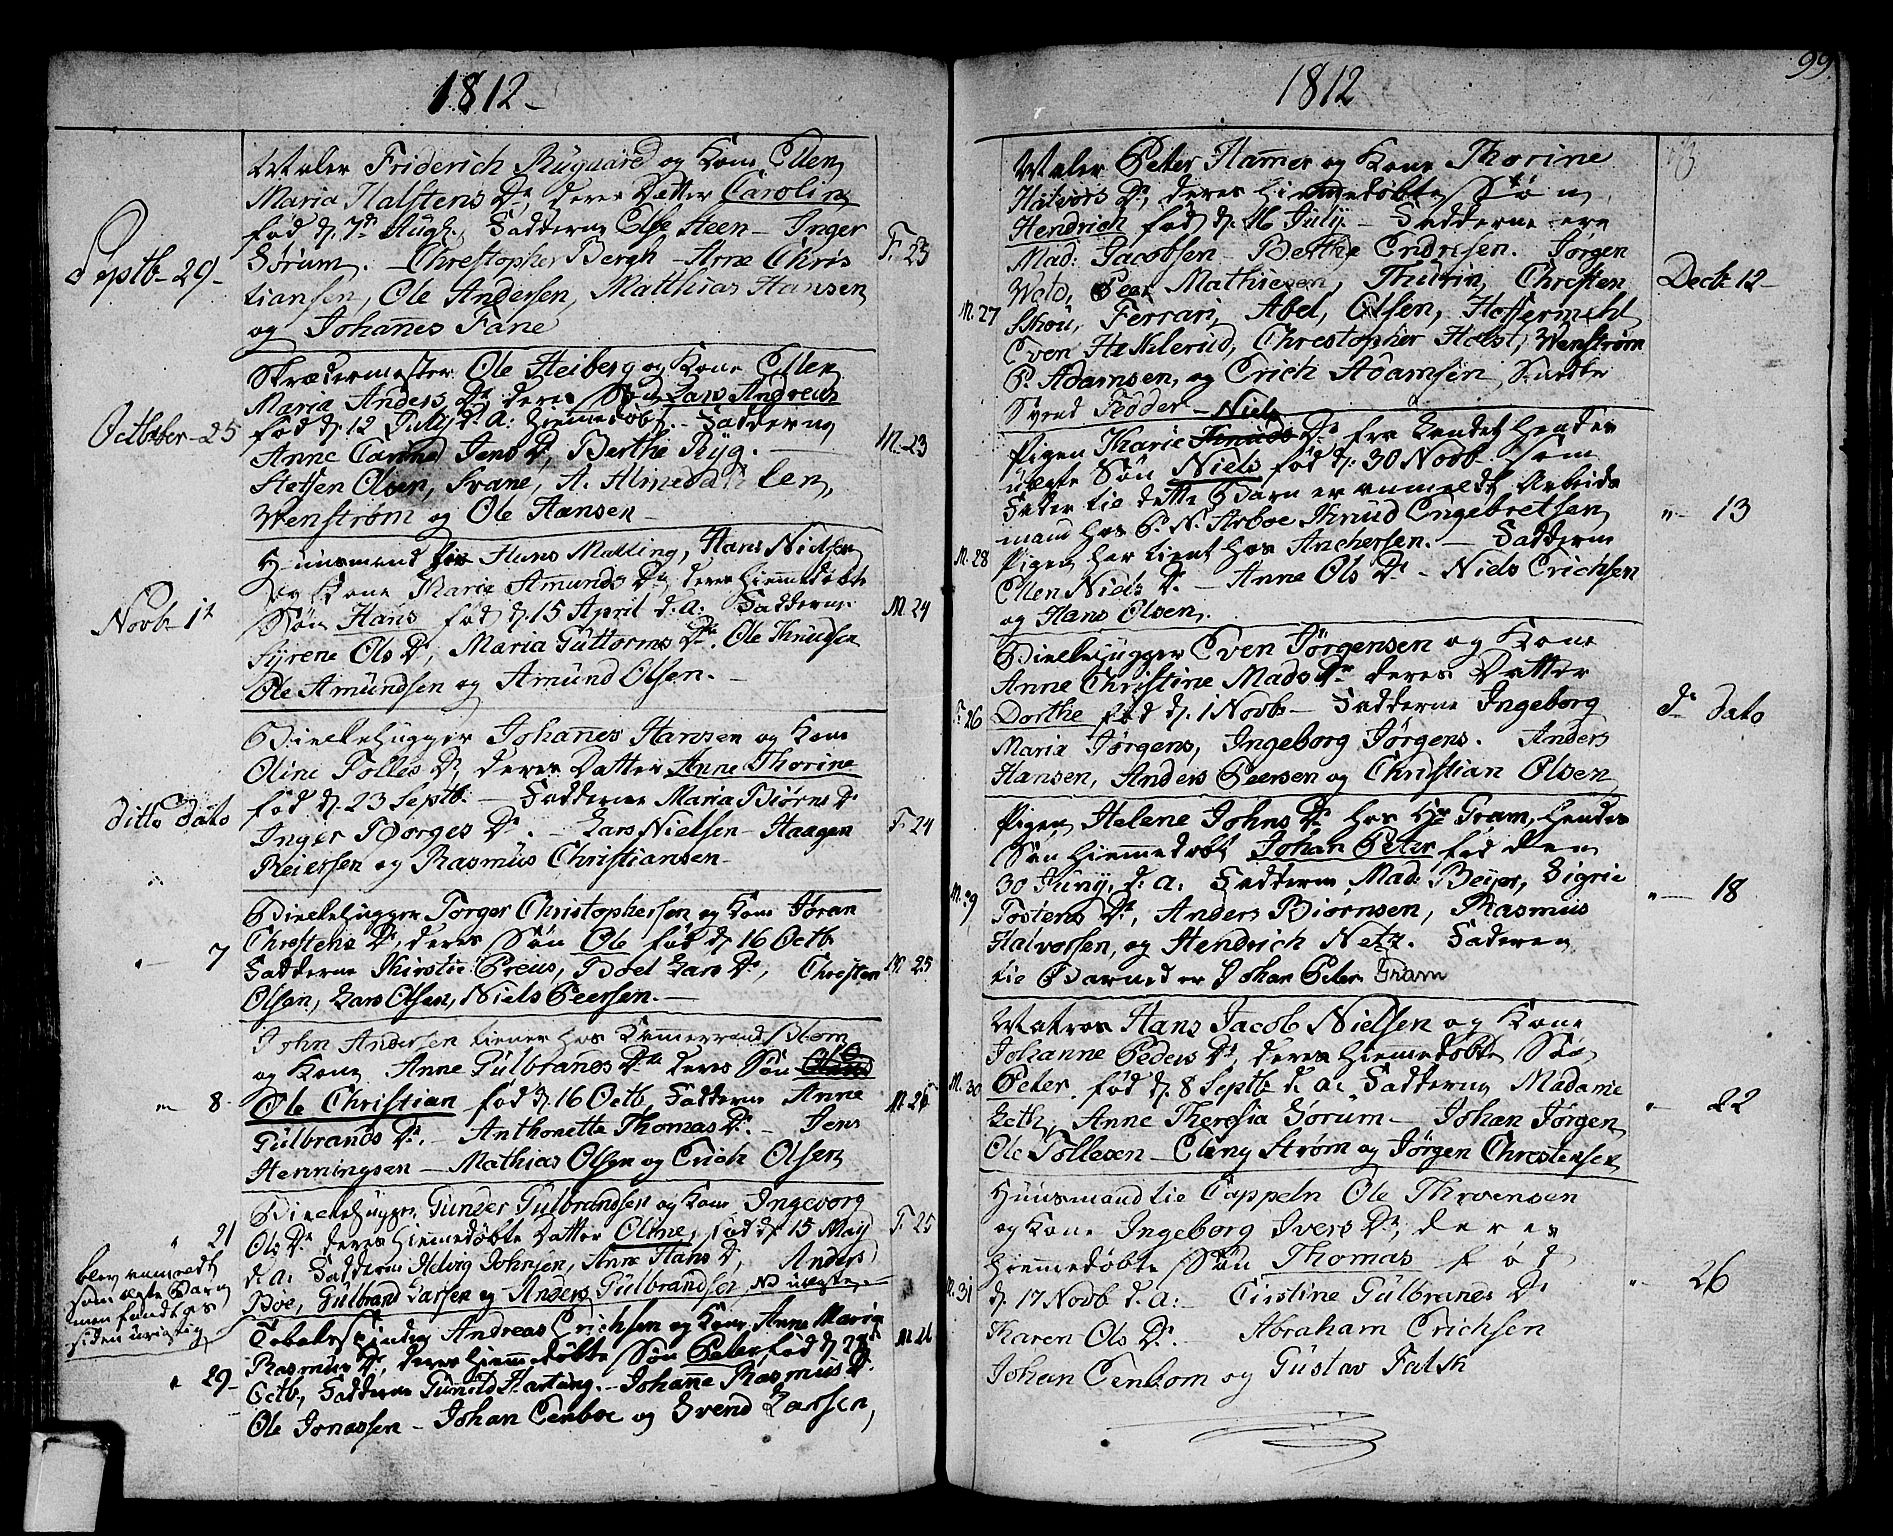 1812
Septb 29
Maler Friderich Ruguard og Kone Ellen
Maria Halstens Dr, deres Datter Carolin
fød d. 7de Augh. Fadderne Else Steen - Inger
Sørum. - Christopher Bergh - Arne Chris
tiansen, Ole Andersen, Matthias Hansen
og Johannes Fane
F. 23
Octber 25
Skrædermester Ole Heiberg og Kone Ellen
Maria Anders Dr deres Søn Lars Andreas
fød d. 12 July d. a: hiemmedøbt. Fadderne
Anne Jens Dr, Berthe Ryg. -
Steffen Olsen, Svane, A. Almedahlen,
Wenstrøm og Ole Hansen
M. 23
Novb 1
Huusmand Hans Malling, Hans Nielsen
og Kone Marie Amunds Dr deres hiemmedøbte
Søn Hans fød d. 15 April d. a: Fadderne
Syrene Ols Dr, Maria Guttorms Dr. Ole Knudsen
Ole Amundsen og Amund Olsen. -
M 24
ditto dato
Bielkehugger Johannes Hansen og Kone
Oline Tolles Dr, deres Datter Anne Thorine
fød d. 23 Septb. - Fadderne Maria Biørns Dr
Inger Borges Dr. - Lars Nielsen - Haagen
Reiersen og Rasmus Christiansen
F. 24
" 7
Bielkehugger Torger Christophersen og Kone Jøran
Christens Dr, deres Søn Ole fød d. 16 Octb
Fadderne Kirstie Preus, Boel Lars Dr, Christen
Olsen, Lars Olsen, Niels Peersen. -
M. 25
" 8
John Andersen tiener hos Kammerraad Blom
og Kone Anne Gulbrands Dr deres Søn
Ole Christian fød d. 16 Octb, Fadderne Anne
Gulbrands Dr. - Anthonette Thomas Dr. - Jens
Henningsen - Mathias Olsen og Erich Olsen
" 21
Bielkehugger Gunder Gulbrandsen og Kone Ingeborg
Ols Dr deres hiemmedøbte Datter Oline, fød d. 15 May
d. a: Fadderne Helvig Johnsen, Anne Hans Dr, Anders
Boe, Gulbrand Larsen og Anders Gulbrandsen, NB uægte
F. 25
blev anmeldt
som ægte Barn
men fandtes
siden urigtig
" 29
Andreas Erichsen og Kone Anne Maria
Rasmus Dr, deres hiemmedøbte Søn Peter fød d.
Octb, Fadderne Gunild Hartung. - Johanne Rasmus Dr
Ole Jonassen - Johan Cenboe og Svend Larsen,
M 26
1812
99
Maler Peter Hammer og Kone Thorine
Halvors Dr, deres hiemmedøbte Søn
Hendrich fød d. 16 July. - Fadderne ere
Mad: Jacobsen - Berthe Endresen. Jørgen
Wold, Peer Mathiesen, Thurin, Christen
Skou, Ferrari, Abel, Olsen, Hoffermehl
Even Heklerud, Christopher Holst, Wenstrøm
P. Adamsen, og Erich Adamsen
Svend Fedder
M. 27
Decb: 12
Pigen Karie Niels Dr, fra Landet hendes
uægte Søn Niels fød d. 30 Novb. Som
Fader til dette Barn er anmeldt Arbeids
mand hos P. N. Arboe Knud Engebretsen
Pigen har tient hos Anchersen. - Fadderne
Ellen Niels Dr - Anne Ols Dr - Niels Erichsen
og Hans Olsen.
M. 28
" 13
Bielkehugger Even Jørgensen og Kone
Anne Christine Mads Dr deres Datter
Dorthe fød d. 1 Novb - Fadderne Ingeborg
Maria Jørgens, Ingeborg Jørgens. Anders
Hansen, Anders Peersen og Christian Olsen
F. 26
do dato
Pigen Helene Johns Dr hos Hr Gram, hendes
Søn hiemmedøbt Johan Peter fød den
30 Juny d. a: Fadderne Mad: Beyer, Sigrie
Tostens Dr, Anders Biornsen, Rasmus
Halvorsen, og Hendrich Netz. Faderen
til Barnet er Johan Peter Gram
M. 29
" 18
Matros Hans Jacob Nielsen og Kone
Johanne Peders Dr, deres hiemmedøbte Søn
Peter. fød d. 8 Septb. d. a: Fadderne Madame
Leth, Anne Theresia Sørum - Johan Jørgen
Ole Tollesen - Elling Strøm og Jørgen Christensen
M. 30
" 22
Huusmand til Cappeln Ole
og Kone Ingeborg Ivers Dr, deres
hiemmedøbte Søn Thomas fød
d. 17 Novb d. a: - Cirstine Gulbrands Dr
Karen Ols Dr. Abraham Erichsen
Johan Cenbom og Gustav Falsk
M. 31
" 26